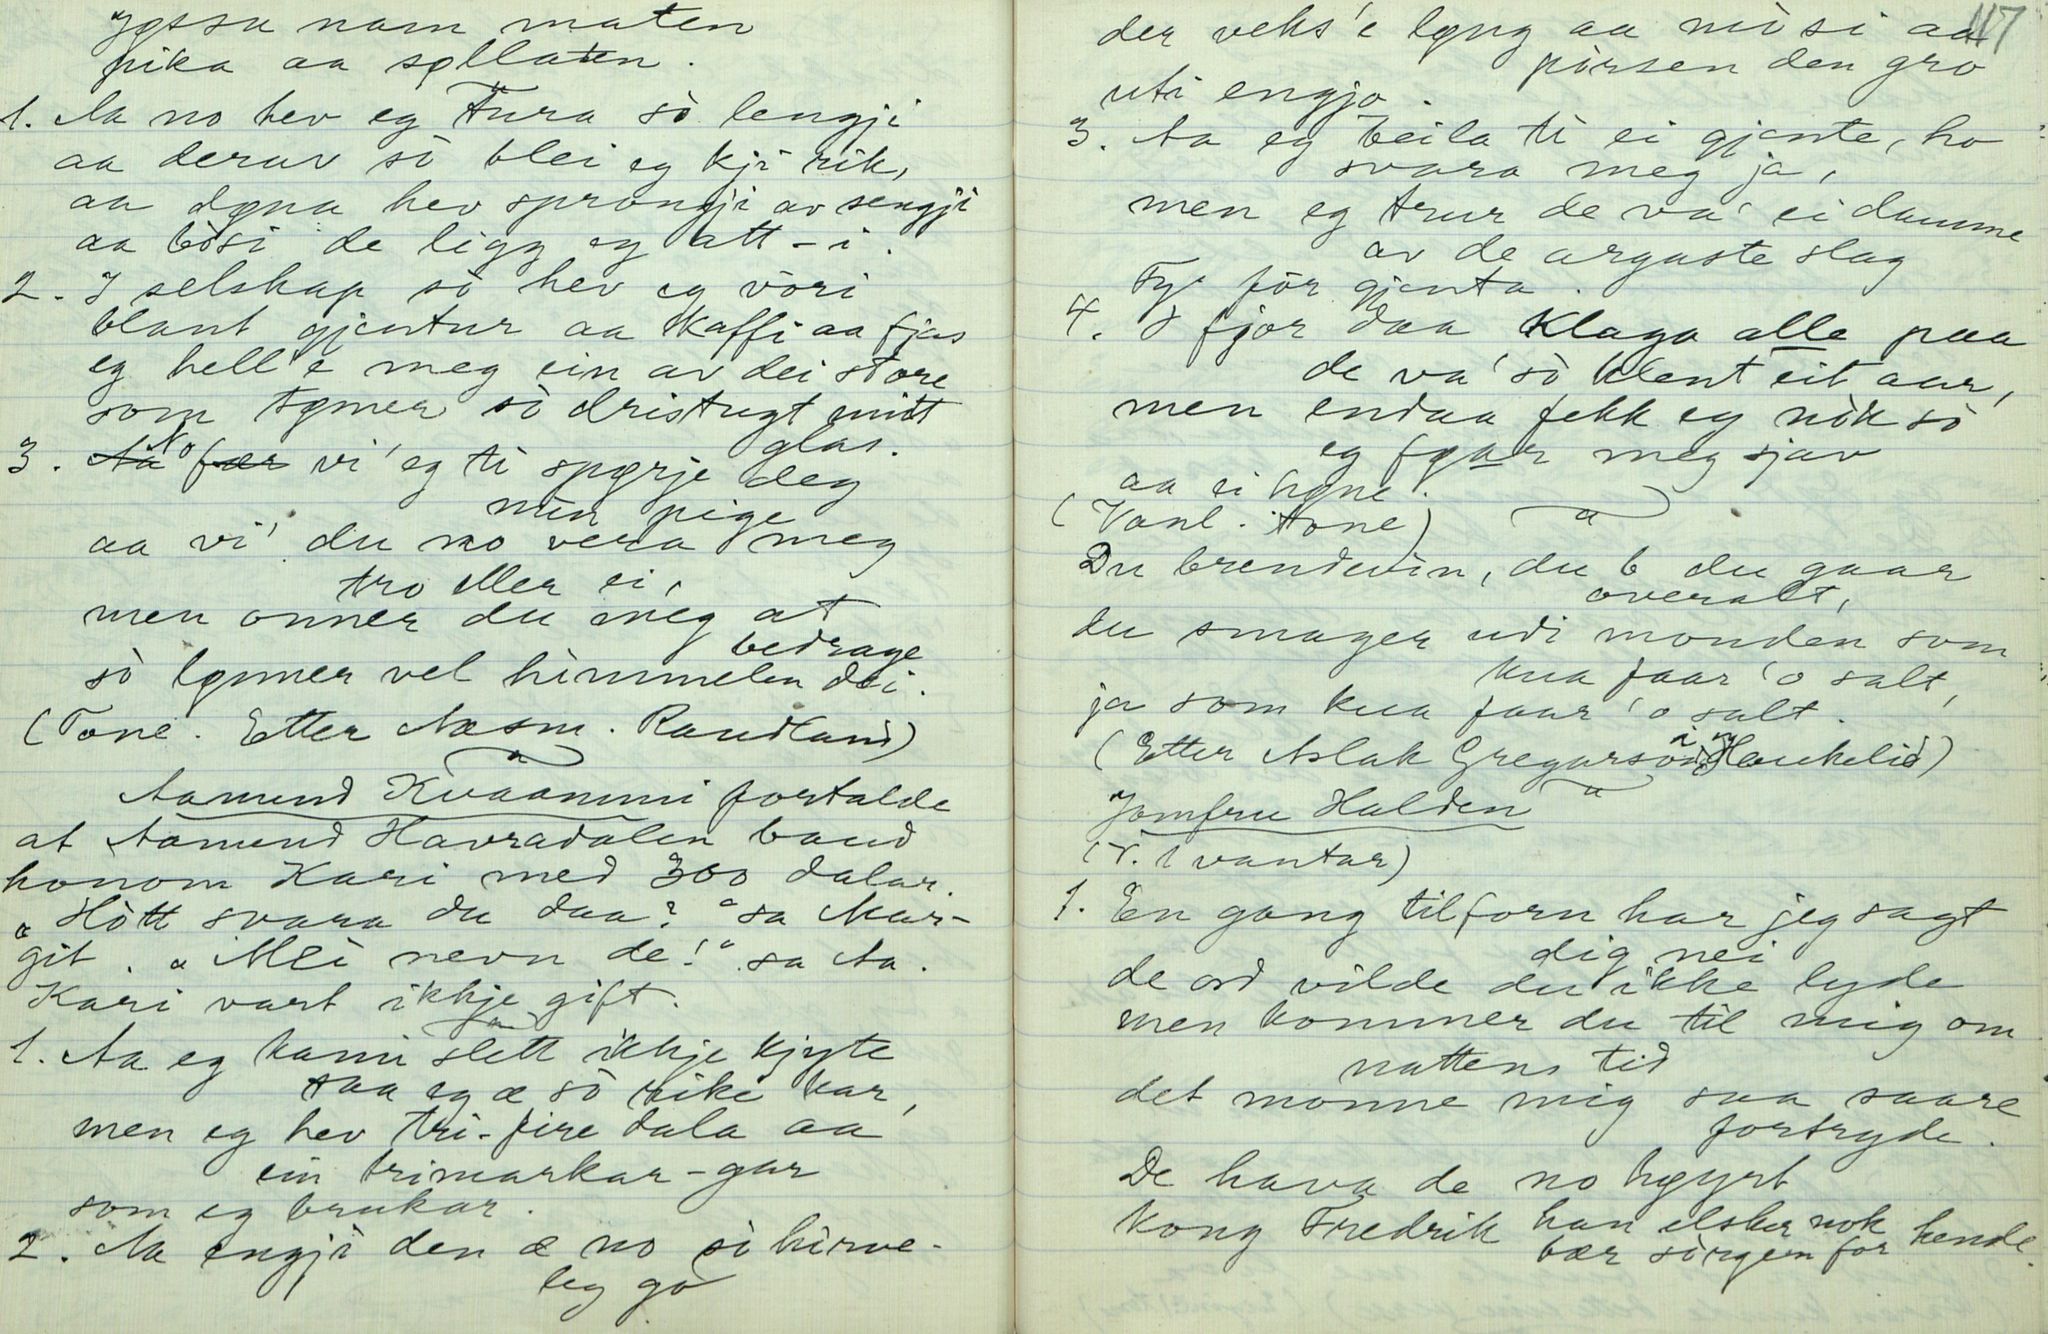 Jøssu nam maten
pika aa søllaten.
1. Aa no hev eg tura sò lengji
aa derav sò blei eg kji rik,
aa døna hev sprongji av sengji
aa bòsi de ligg eg att-i.
2. I selskap sò hev eg vòri
blant gjentur aa kaffi aa fjas
eg hell'e meg ein av dei store
som tømer sò dristugt mitt
glas.
3. No vi' eg ti spørje deg
min pige
aa vi' du no vera meg
tro eller ei,
men onner du meg at
bedrage
sò lønner vel himmelen dei.
(Tone. Etter Aasm. Raudland)
Aamund Kvaammi fortalde
at Aamund Havradalen baud
honom Kari med 300 dalar.
"Hòtt svara du daa?" sa Mar-
git. "Mei nevn de!" sa Aa.
Kari vart ikkje gift.
1. Aa eg kann slett ikkje kjyte
taa eg æ sò rike kar,
men eg hev tri-fire dala aa
ein trimarkar-gar
som eg brukar.
2. Aa engji den æ no sò hirve-
leg go
117
der veks'e lyng aa mòsi aa
pòrsen den gro
uti engjo.
3. Aa eg beila ti ei gjente, ho
svara meg ja,
men eg trur de va' ei damme
av de argaste slag
Fy' fòr gjenta.
4. I fjor daa klaga alle paa
de va' sò klent eit aar,
men endaa fekk eg nòk sò
eg føar meg sjav
aa ei høne.
(Vanl. tone)
Du brendevin, du b du gaar
overalt,
du smager udi monden som
kua faar 'o salt,
ja som kua faar 'o salt.
(Etter Aslak Gregarson i Haukelid)
Jomfru Halden
(V. 1 vantar)
1. En gang tilforn har jeg sagt
dig nei
de ord vilde du ikke lyde
men kommer du til mig om
nattens tid
det monne mig saa saare
fortryde.
De hava de no høyrt
Kong Fredrik han elsker nok
bær sorgen for hende.